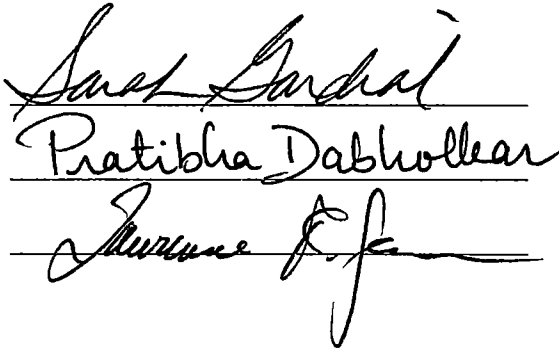 Sarah Gardial
Pratibha Dabholkar
Laurence R. Ja